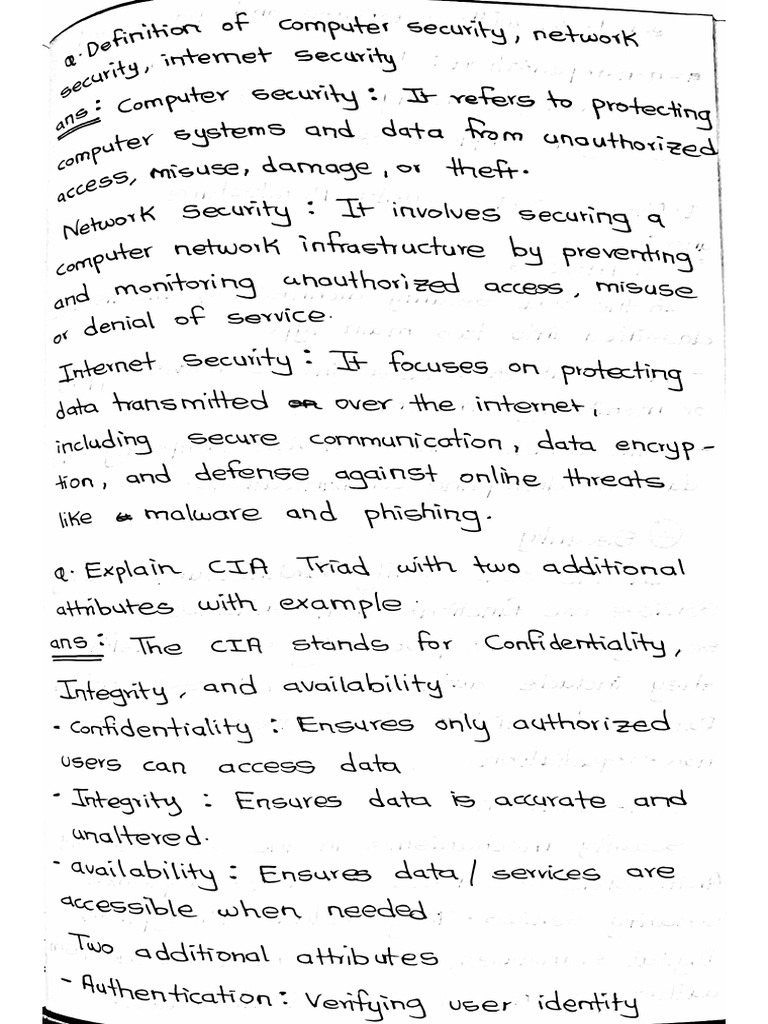 Q. Definition of computer security, network
security, internet security
ans: Computer security: It refers to protecting
computer systems and data from unauthorized
access, misuse, damage, or theft.
Network Security: It involves securing a
computer network infrastructure by preventing
and monitoring unauthorized access, misuse
or denial of service.
Internet Security: It focuses on protecting
data transmitted over the internet,
including secure communication, data encryp-
tion, and defense against online threats
like malware and phishing.
Q. Explain CIA Triad with two additional
attributes with example.
ans: The CIA stands for Confidentiality,
Integrity, and availability.
- Confidentiality: Ensures only authorized
users can access data
- Integrity: Ensures data is accurate and
unaltered.
- availability: Ensures data/services are
accessible when needed.
Two additional attributes
- Authentication: Verifying user identity